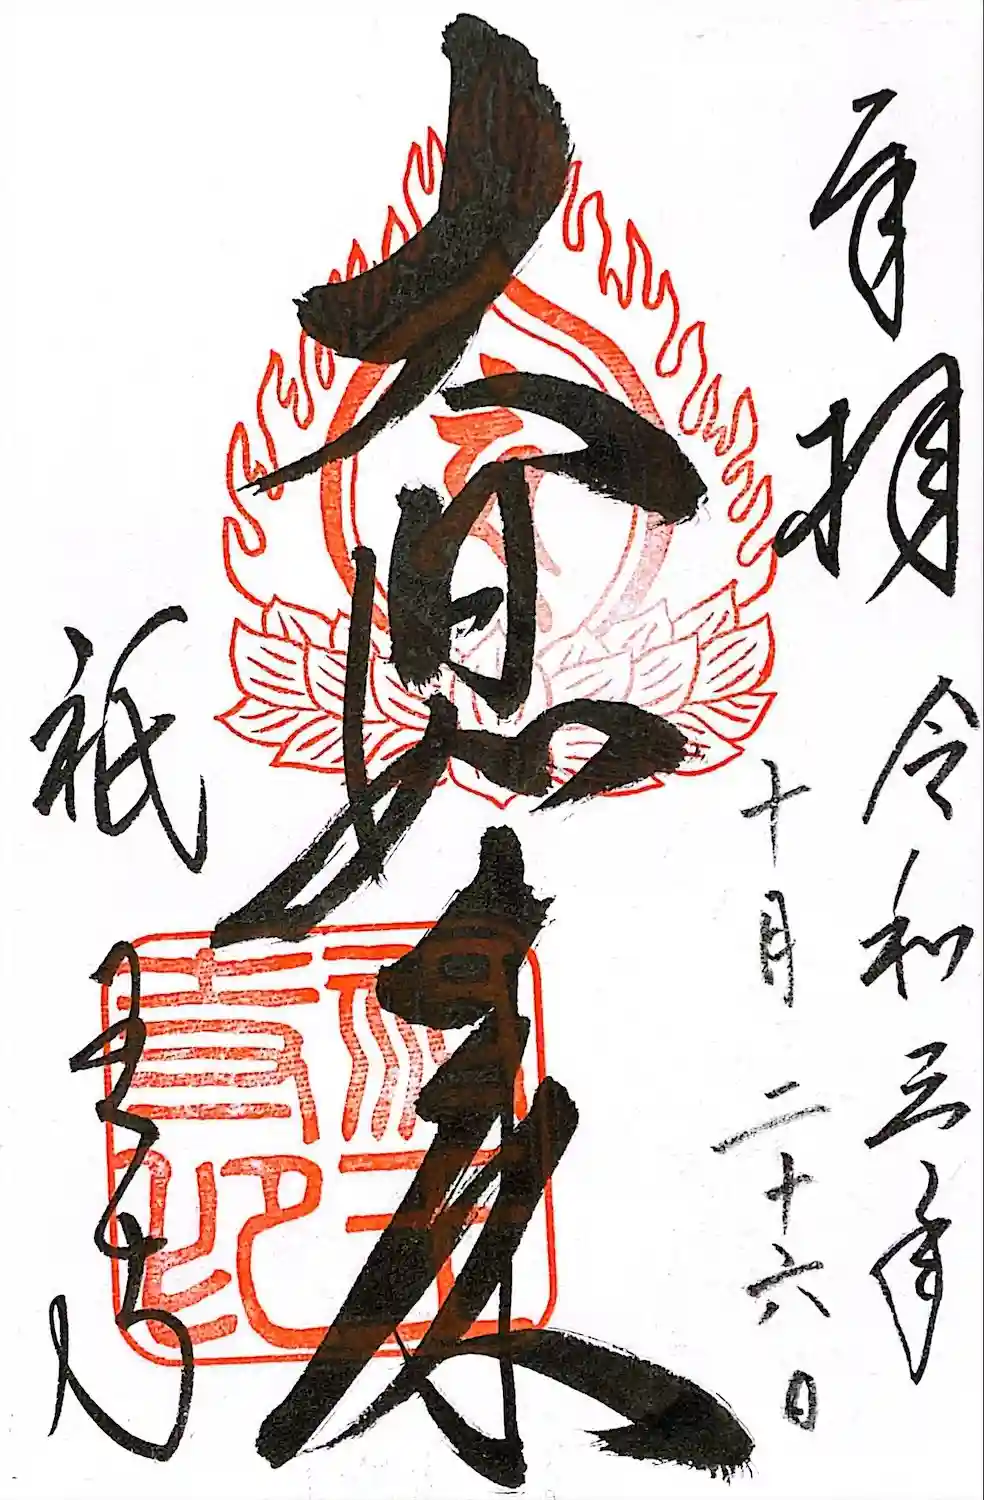 奉拝 令和三年
十月二十六日
大日如来
祇王寺
祇王寺印